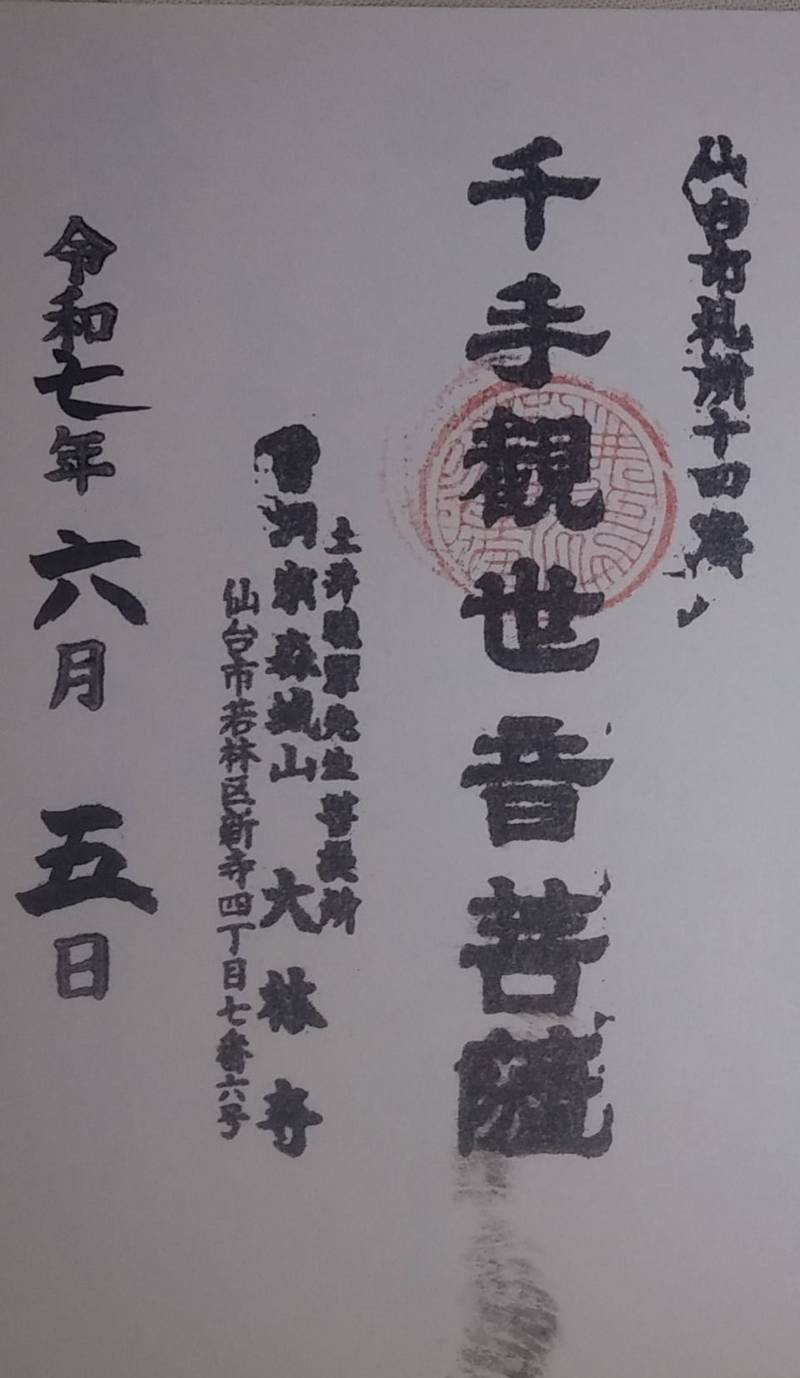 仙台市札所十四番
千手観世音菩薩
土井晩翠先生菩提所
曹洞宗森城山 大林寺
仙台市若林区新寺四丁目七番六号
令和七年 六月 五日